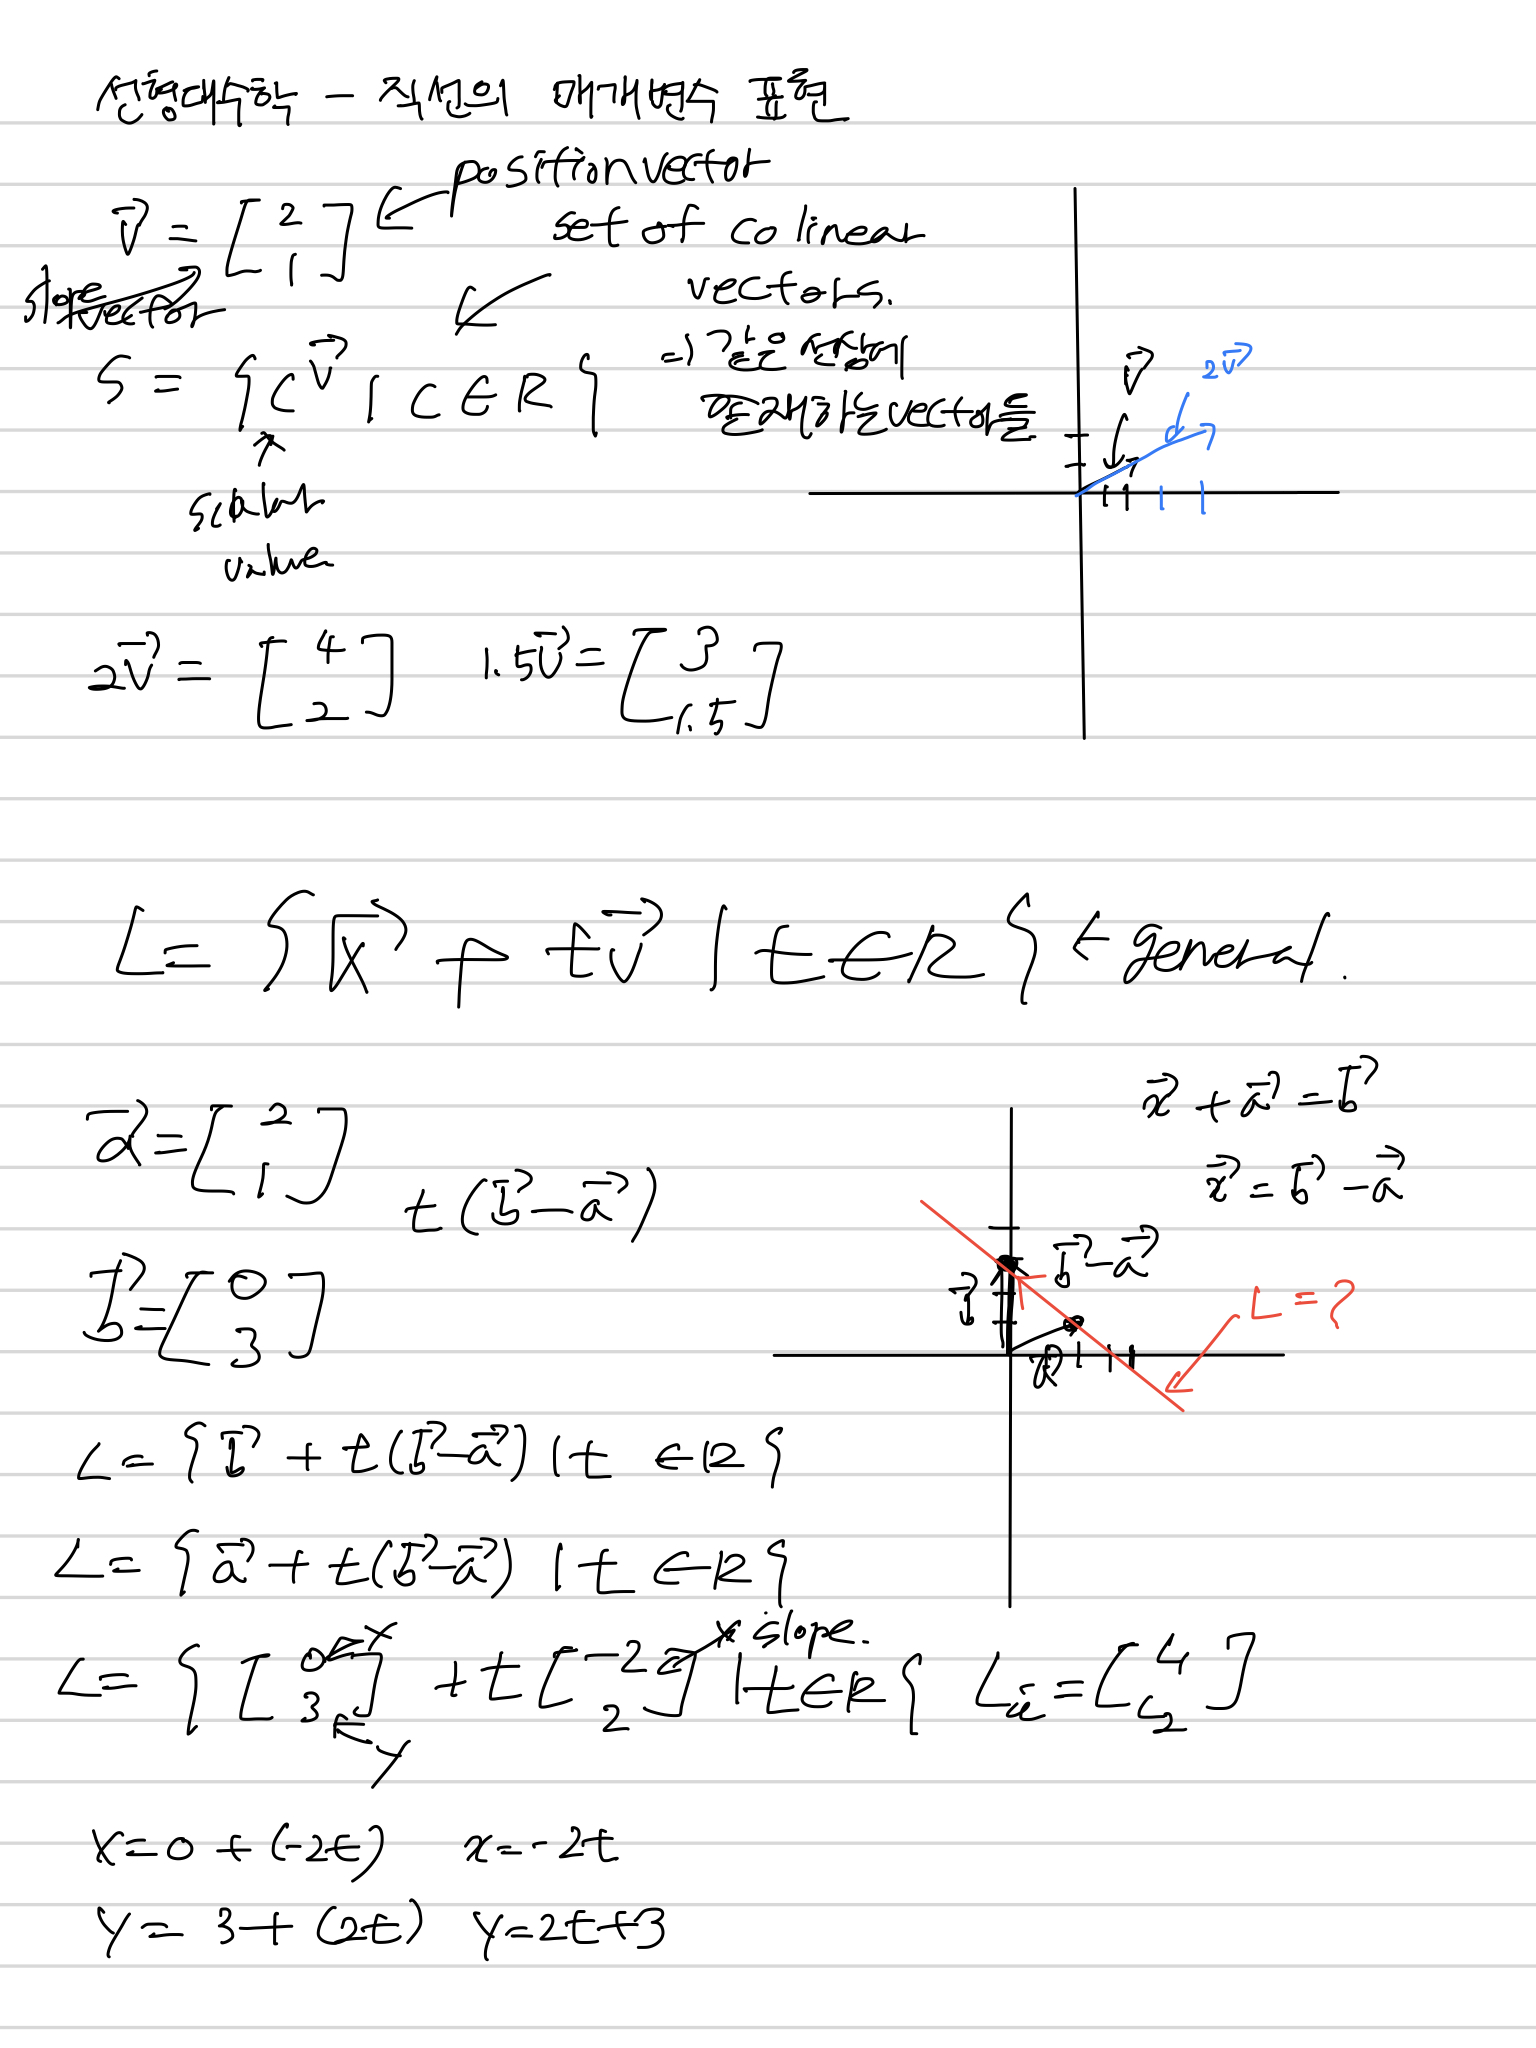 선형대수학 - 직선의 매개변수 표현
v⃗ = [2 1] ← position vector
slope vector
set of colinear vectors.
S = {c v⃗ | c ∈ R}
⇒ 같은 선상에
존재하는 vector들
scalar value
v⃗
2v⃗
2v⃗ = [4 2] 1.5v⃗ = [3 1.5]
L = {x⃗ + tv⃗ | t ∈ R} ← general.
a⃗ = [2 1]
t(b⃗ - a⃗)
b⃗ = [0 3]
x⃗ + a⃗ = b⃗
x⃗ = b⃗ - a⃗
b⃗ - a⃗
b⃗
a⃗
L = ?
L = {b⃗ + t(b⃗ - a⃗) | t ∈ R}
L = {a⃗ + t(b⃗ - a⃗) | t ∈ R}
x
slope.
L = {[0 3] + t[-2 2] | t ∈ R}
y
x = 0 + (-2t) x = -2t
y = 3 + (2t) y = 2t + 3